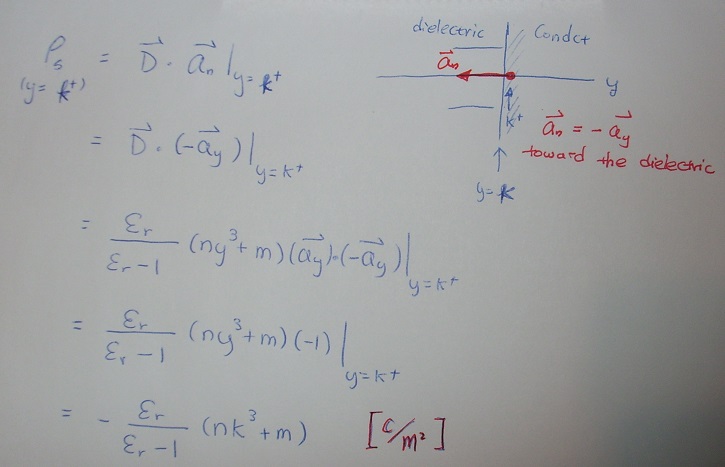 ρ_s = D⃗ · a⃗_n |_{y=k⁺}
(y=k⁺)
= D⃗ · (-a⃗_y) |_{y=k⁺}
= ε_r / (ε_r - 1) (ny³ + m) (a⃗_y)·(-a⃗_y) |_{y=k⁺}
= ε_r / (ε_r - 1) (ny³ + m) (-1) |_{y=k⁺}
= - ε_r / (ε_r - 1) (nk³ + m) [C/m²]
dielectric
Condct
a⃗_n
y
k⁺
a⃗_n = - a⃗_y
toward the dielectric
y=k